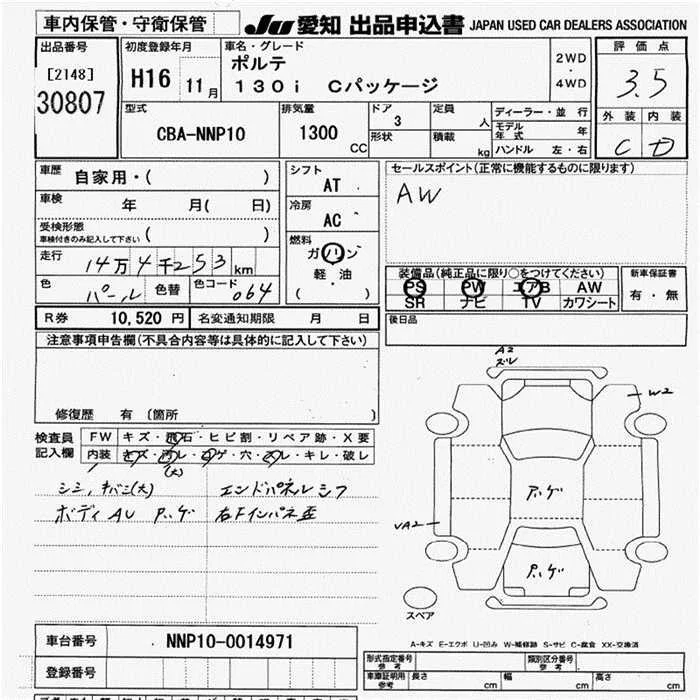 車内保管・守衛保管
JU 愛知 出品申込書 JAPAN USED CAR DEALERS ASSOCIATION
出品番号 初度登録年月 車名・グレード 評価点
[2148] H16 11月 ポルテ 2WD・4WD 3.5
30807 130i Cパッケージ
型式 排気量 ドア 定員 ディーラー・並行 外装 内装
CBA-NNP10 1300 CC 3 人 モデル年式 年 C D
形状 積載 kg ハンドル 左・右
車歴 自家用・( ) シフト AT セールスポイント(正常に機能するものに限ります)
車検 年 月( 日) 冷房 AC AW
受検形態 ( )
車検付きのみ記入して下さい
走行 14万4千253km 燃料 ガソリン 軽・油 ( )
装備品(純正品に限り○をつけてください) 新車保証書
色 パール 色替 色コード 064 PS PW エアB AW 有・無
SR ナビ TV カワシート
R券 10,520円 名変通知期限 月 日 後日品
注意事項申告欄(不具合内容等は具体的に記入して下さい)
修復歴 有 〔箇所 〕
A2
ズレ
W2
検査員記入欄 FW キズ・飛石・ヒビ割・リペア跡・X要
内装 キズ・汚レ・コゲ・穴・スレ・キレ・破レ
(大)
シミ,キバミ(大) エンドパネルシワ
ボディAU ハゲ 右Fインパネ歪
ハゲ
VA2
ハゲ
スペア
車台番号 NNP10-0014971
A-キズ E-エクボ U-凹み W-補修跡 S-サビ C-腐食 XX-交換済
登録番号
形式指定番号 参考 類別区分番号 参考
車庫証明用 参考 長さ cm 幅 cm 高さ cm